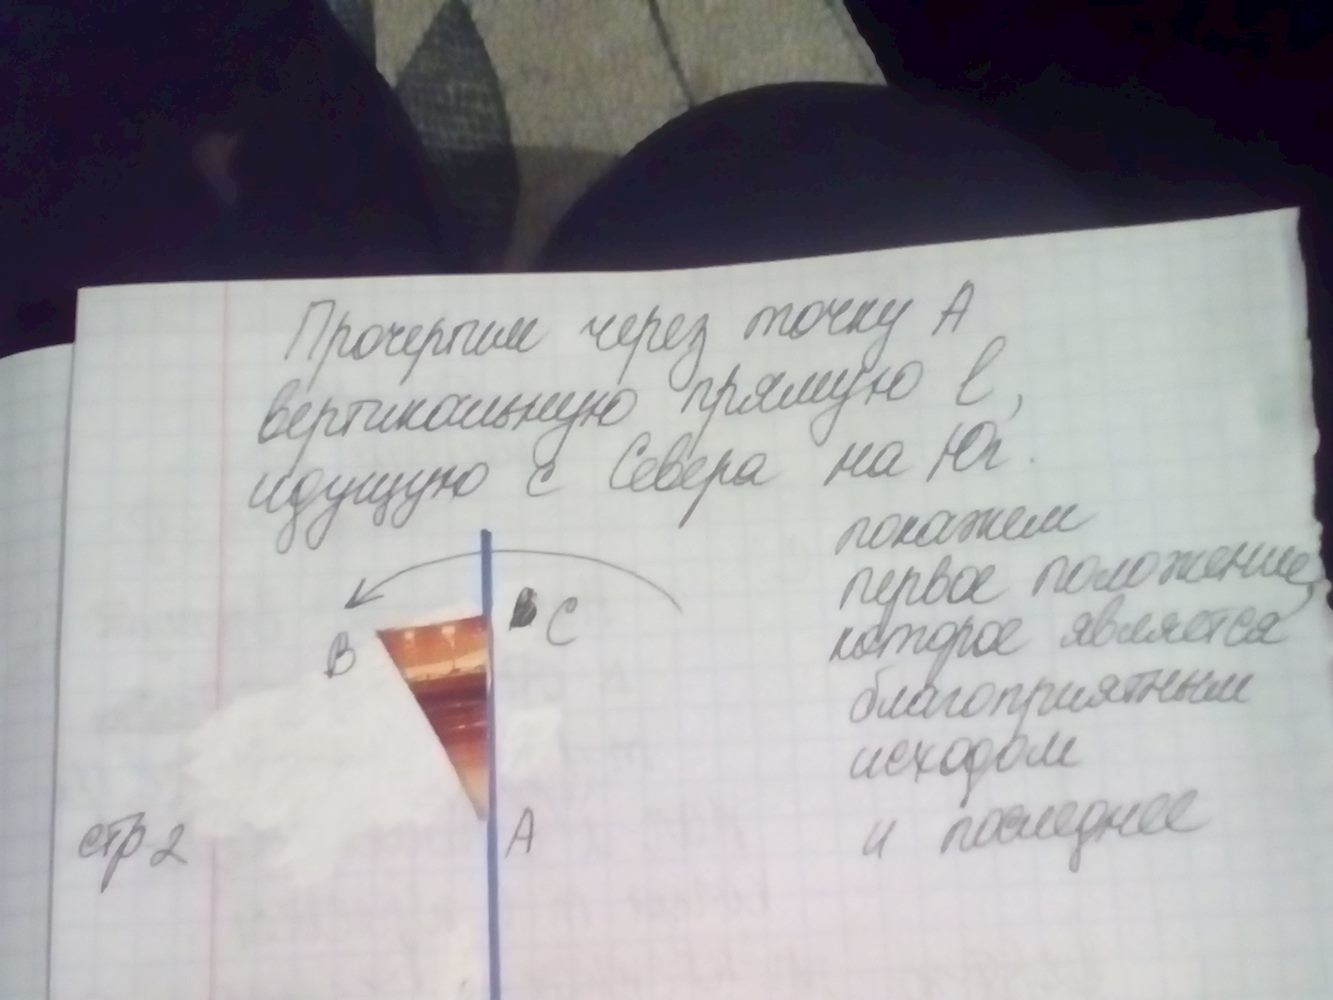 Прочертим через точку А
вертикальную прямую l,
идущую с Севера на Юг.
покажем
первое положение,
которое является
благоприятным
исходом
и последнее
В
С
А
стр 2